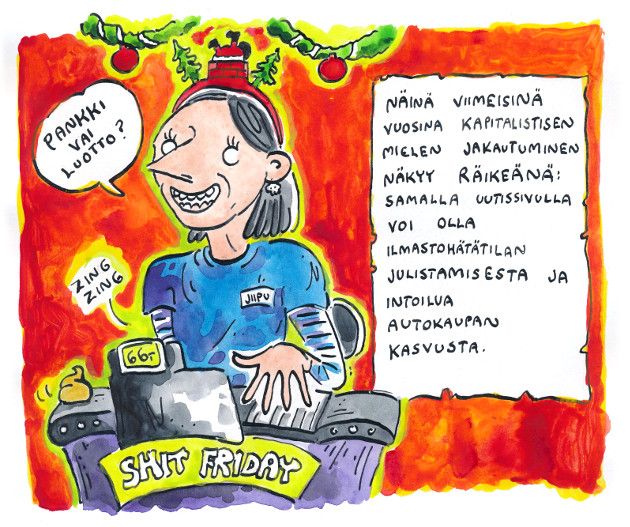 PANKKI
VAI
LUOTTO?
ZING
ZING
66,-
JIIPU
SHIT FRIDAY
NÄINÄ VIIMEISINÄ
VUOSINA KAPITALISTISEN
MIELEN JAKAUTUMINEN
NÄKYY RÄIKEÄNÄ:
SAMALLA UUTISSIVULLA
VOI OLLA
ILMASTOHÄTÄTILAN
JULISTAMISESTA JA
INTOILUA
AUTOKAUPAN
KASVUSTA.